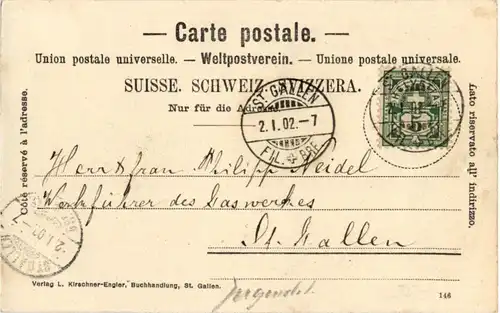 — Carte postale. —
Union postale universelle. — Weltpostverein. — Unione postale universale.
SUISSE. SCHWEIZ. SVIZZERA.
Nur für die Adresse.
Côté réservé à l'adresse.
Lato riservato all' indirizzo.
ST. GALLEN
2.I.02.-7
FIL. BRF.
Herr & frau Philipp Neidel
Werkführer des Gaswerkes
St. Gallen
ST. GALLEN
2.I.02.-7
Verlag L. Kirschner-Engler, Buchhandlung, St. Gallen.
146